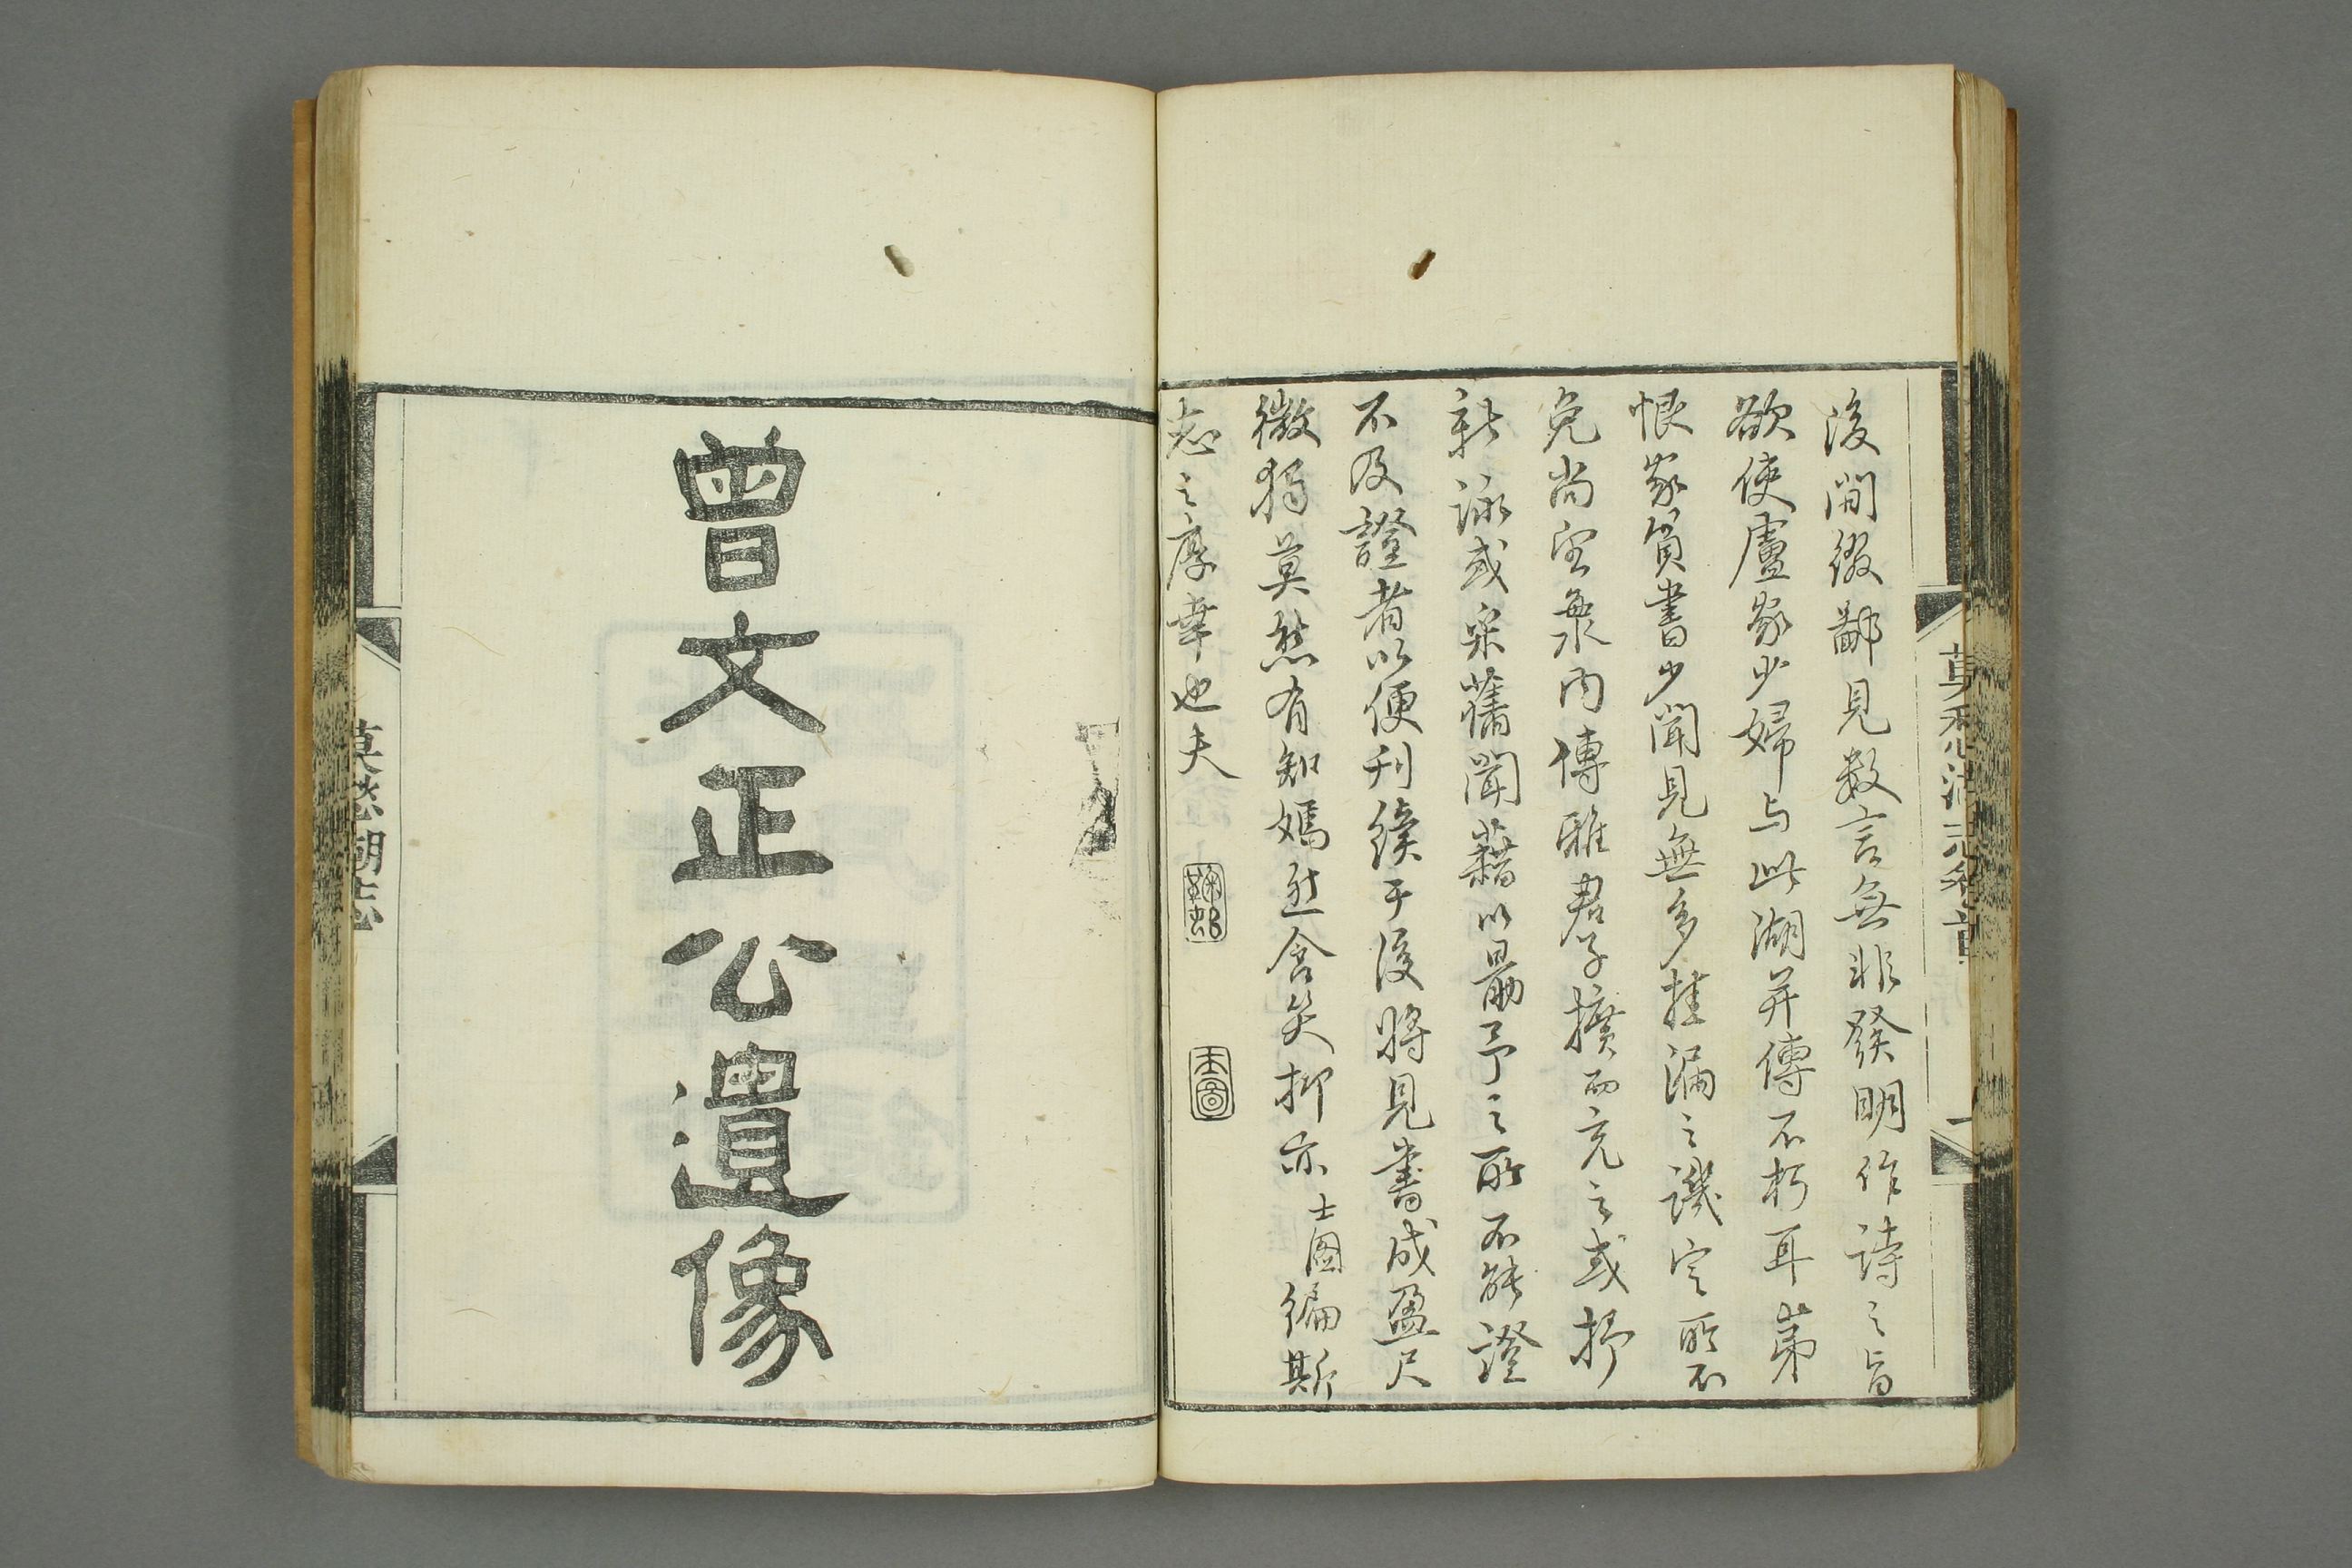 後間綴鄙見數言無非發明作詩之旨
欲使盧家少婦与此湖并傳不朽耳苐
恨家貧書少聞見無多挂漏之譏定所不
免尚望海內傳雅君子擴而充之或抒
新詠或采舊聞藉以勗予之所不能證
不及證者以便刊續于後將見書成盈尺
微獨莫愁有知嫣然含笑抑亦士圖編斯
志之厚幸也夫
士圖
莫愁湖志卷首
曾文正公遺像
莫愁湖志